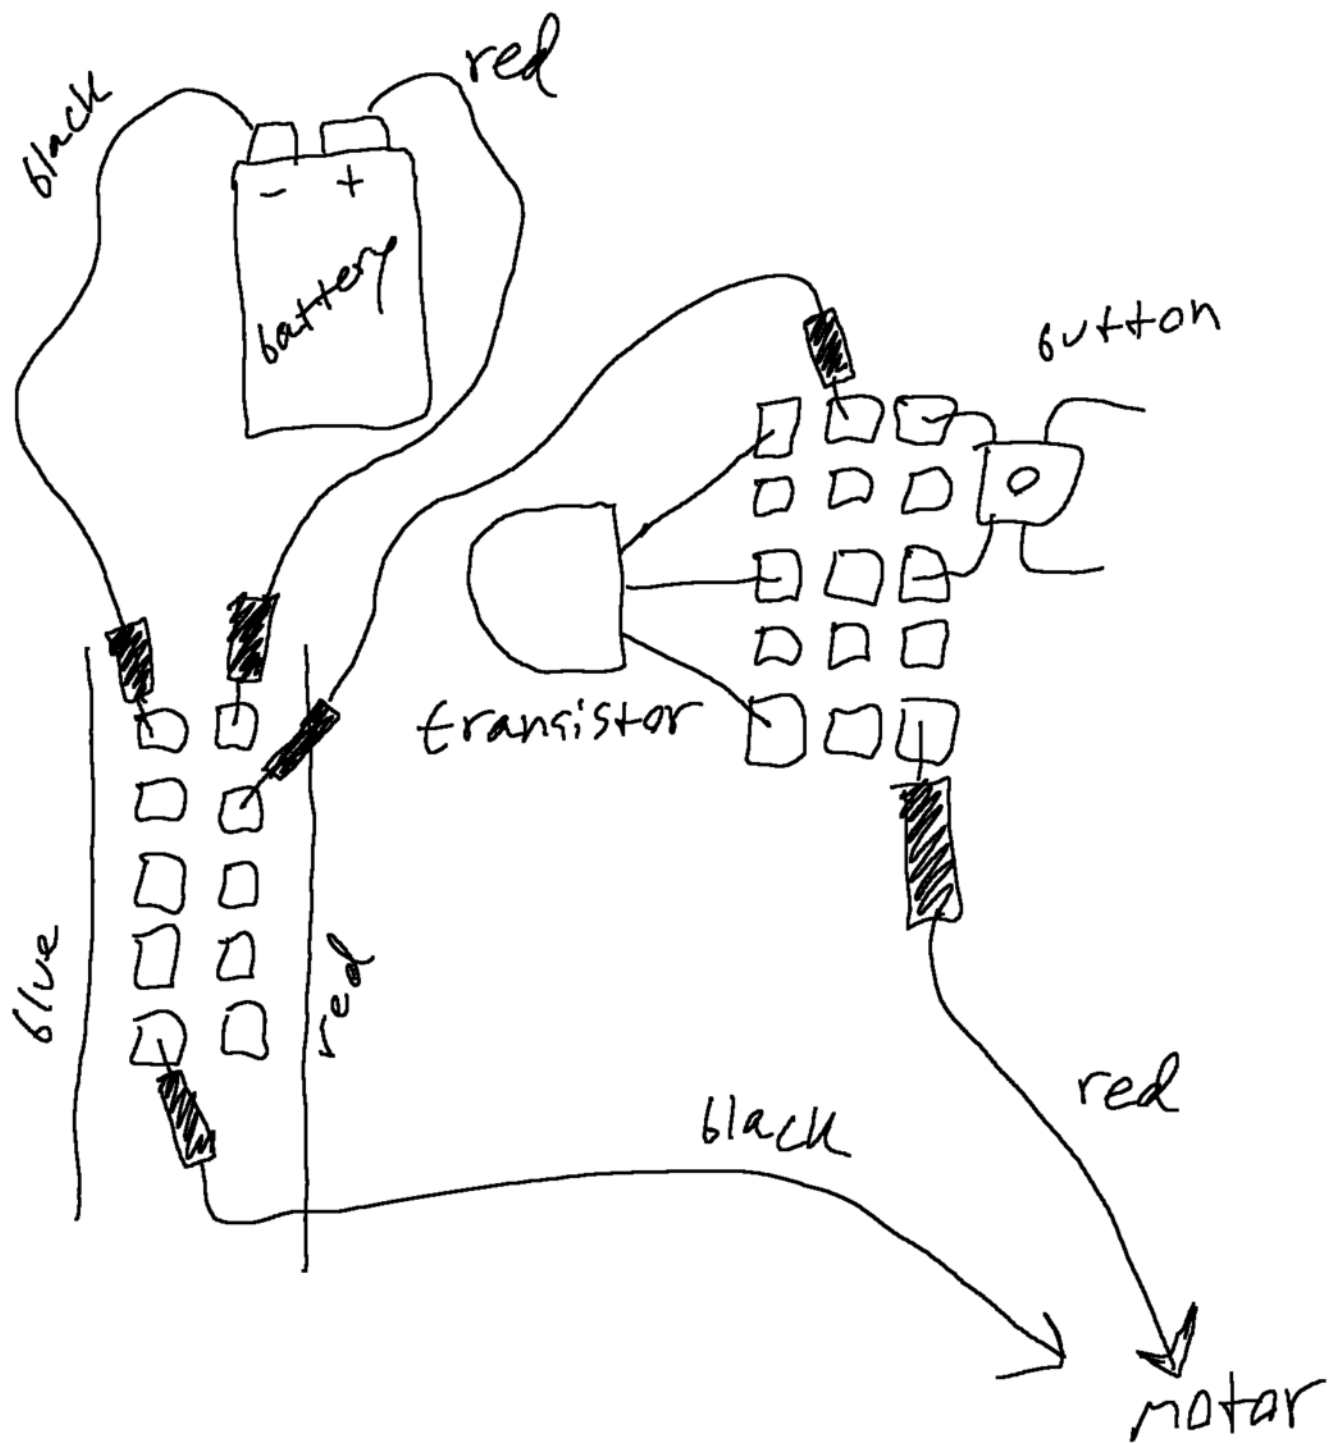 black
red
- +
battery
button
transistor
blue
red
black
red
motor